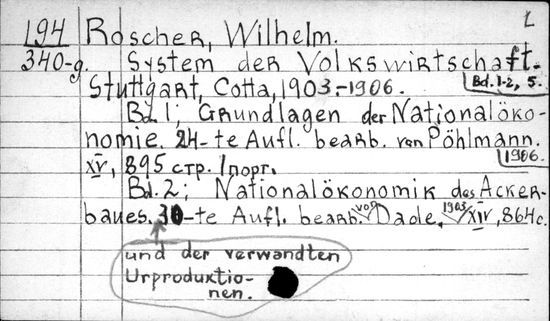 194
340-g.
1
Roscher, Wilhelm.
System der Volkswirtschaft.
Bd. 1-2, 5.
Stuttgart, Cotta, 1903.-1906.
Bd. 1; Grundlagen der Nationalöko-
nomie. 24-te Aufl. bearb. von Pöhlmann.
1906.
XV, 895 стр. 1 порт.
Bd. 2; Nationalökonomik des Acker-
baues. -te Aufl. bearb. von Dade. 1903 XIV, 864 с.
und der verwandten
Urproduktio-
nen.